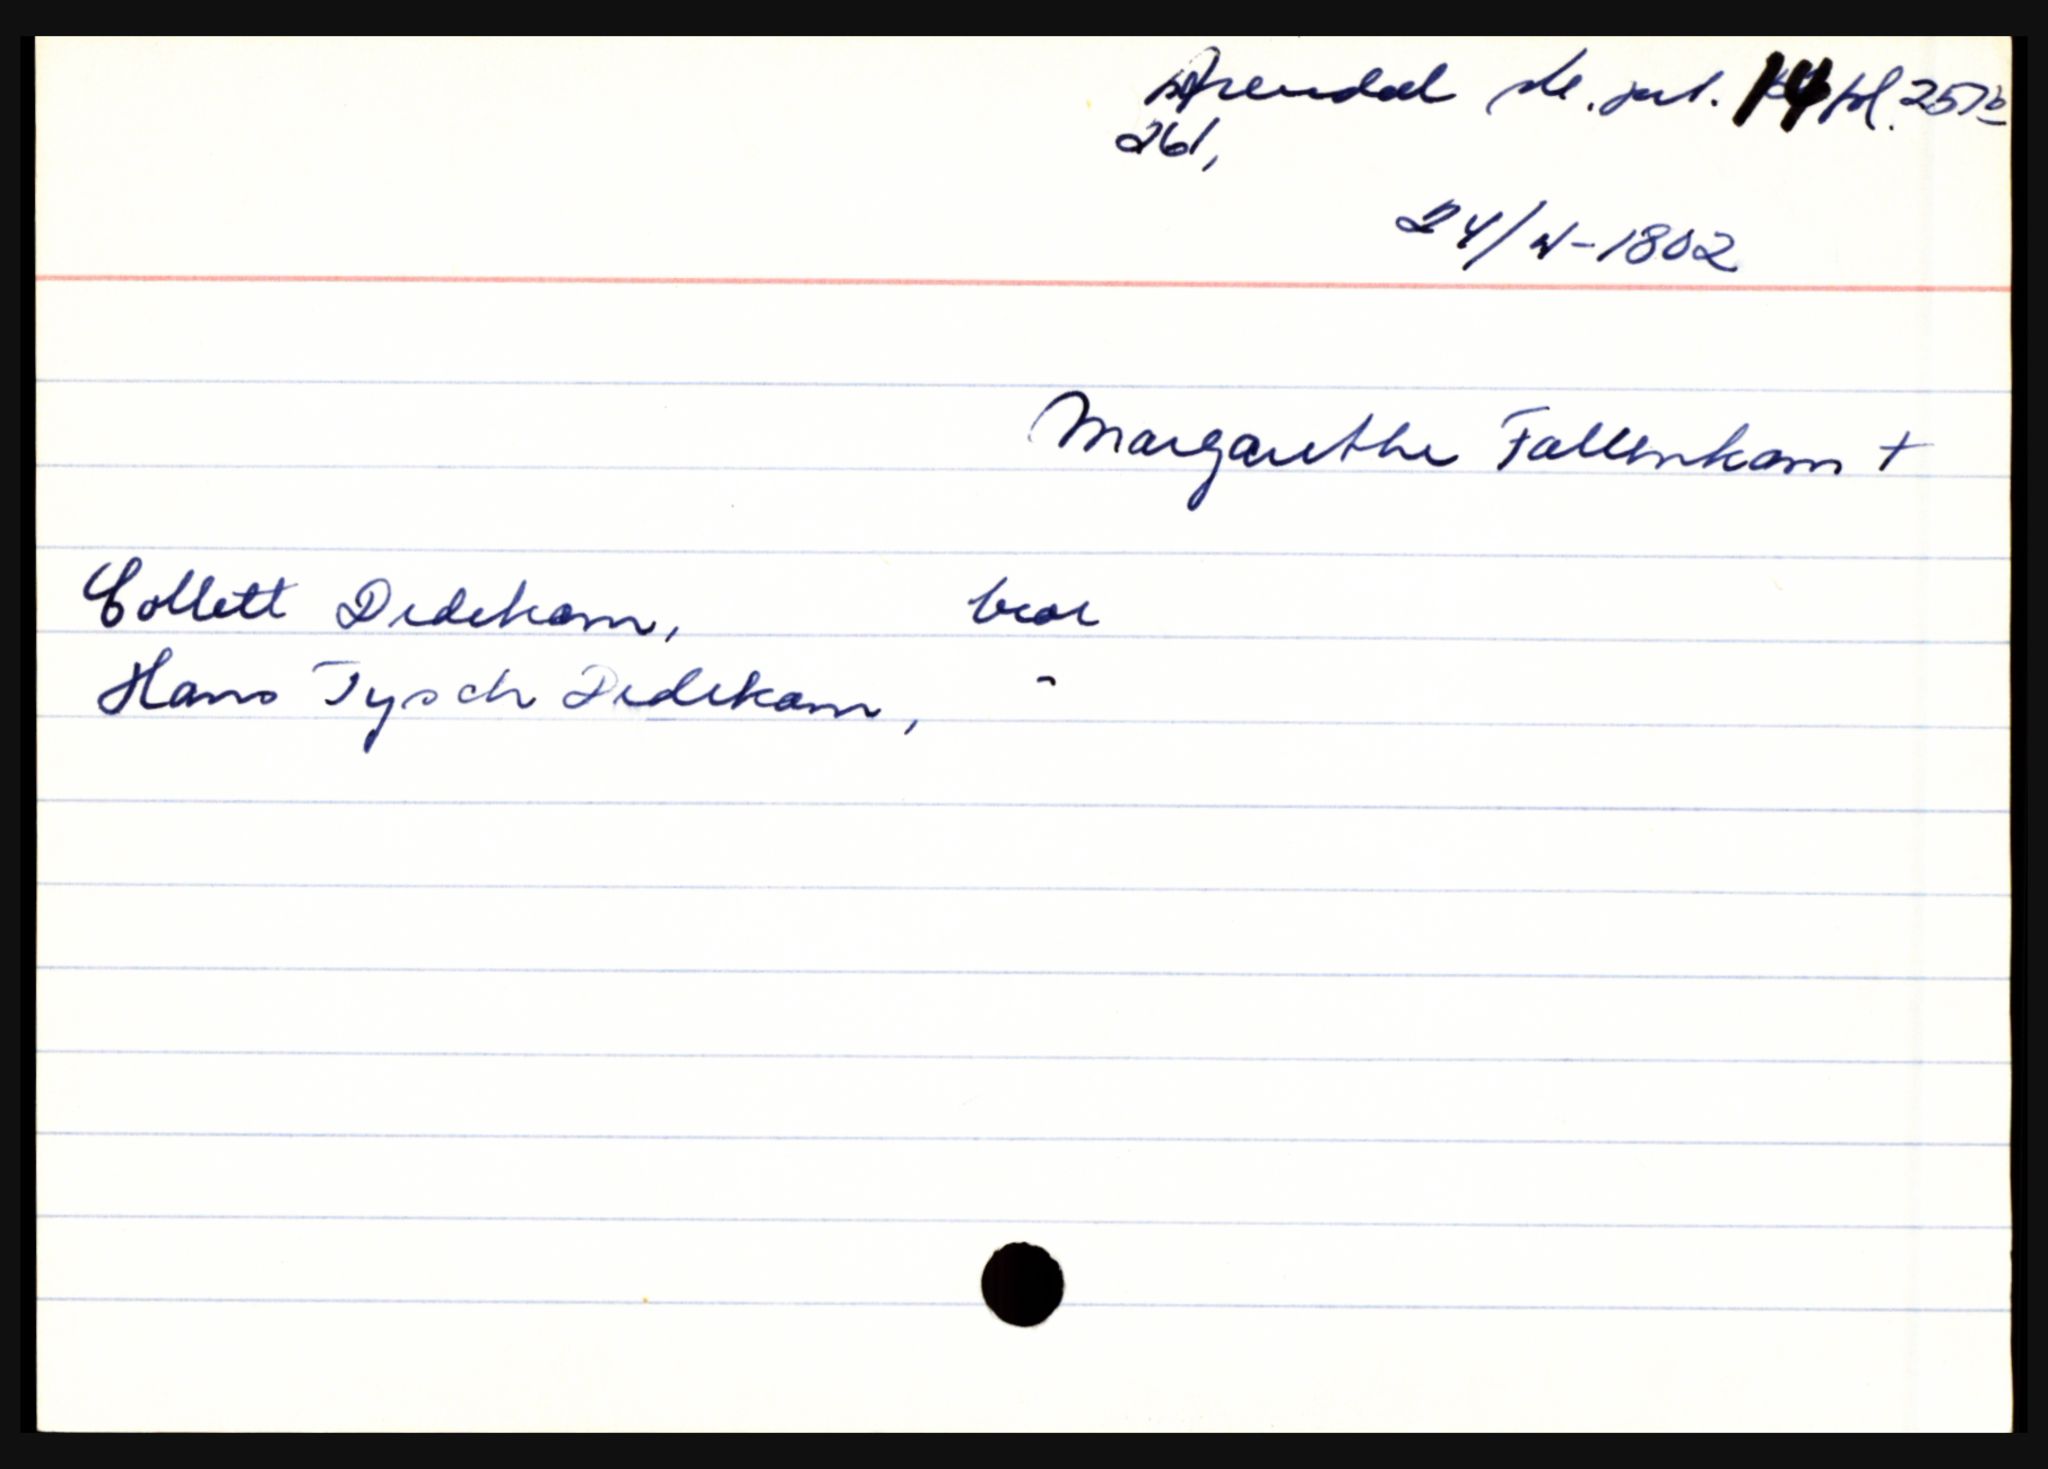 Arendal sk. prt. 14 fol. 257b
261,
24/4-1802
Margarethe Fallenkam +
Collett Dedekam, bror
Hans Tysch Dedekam, "